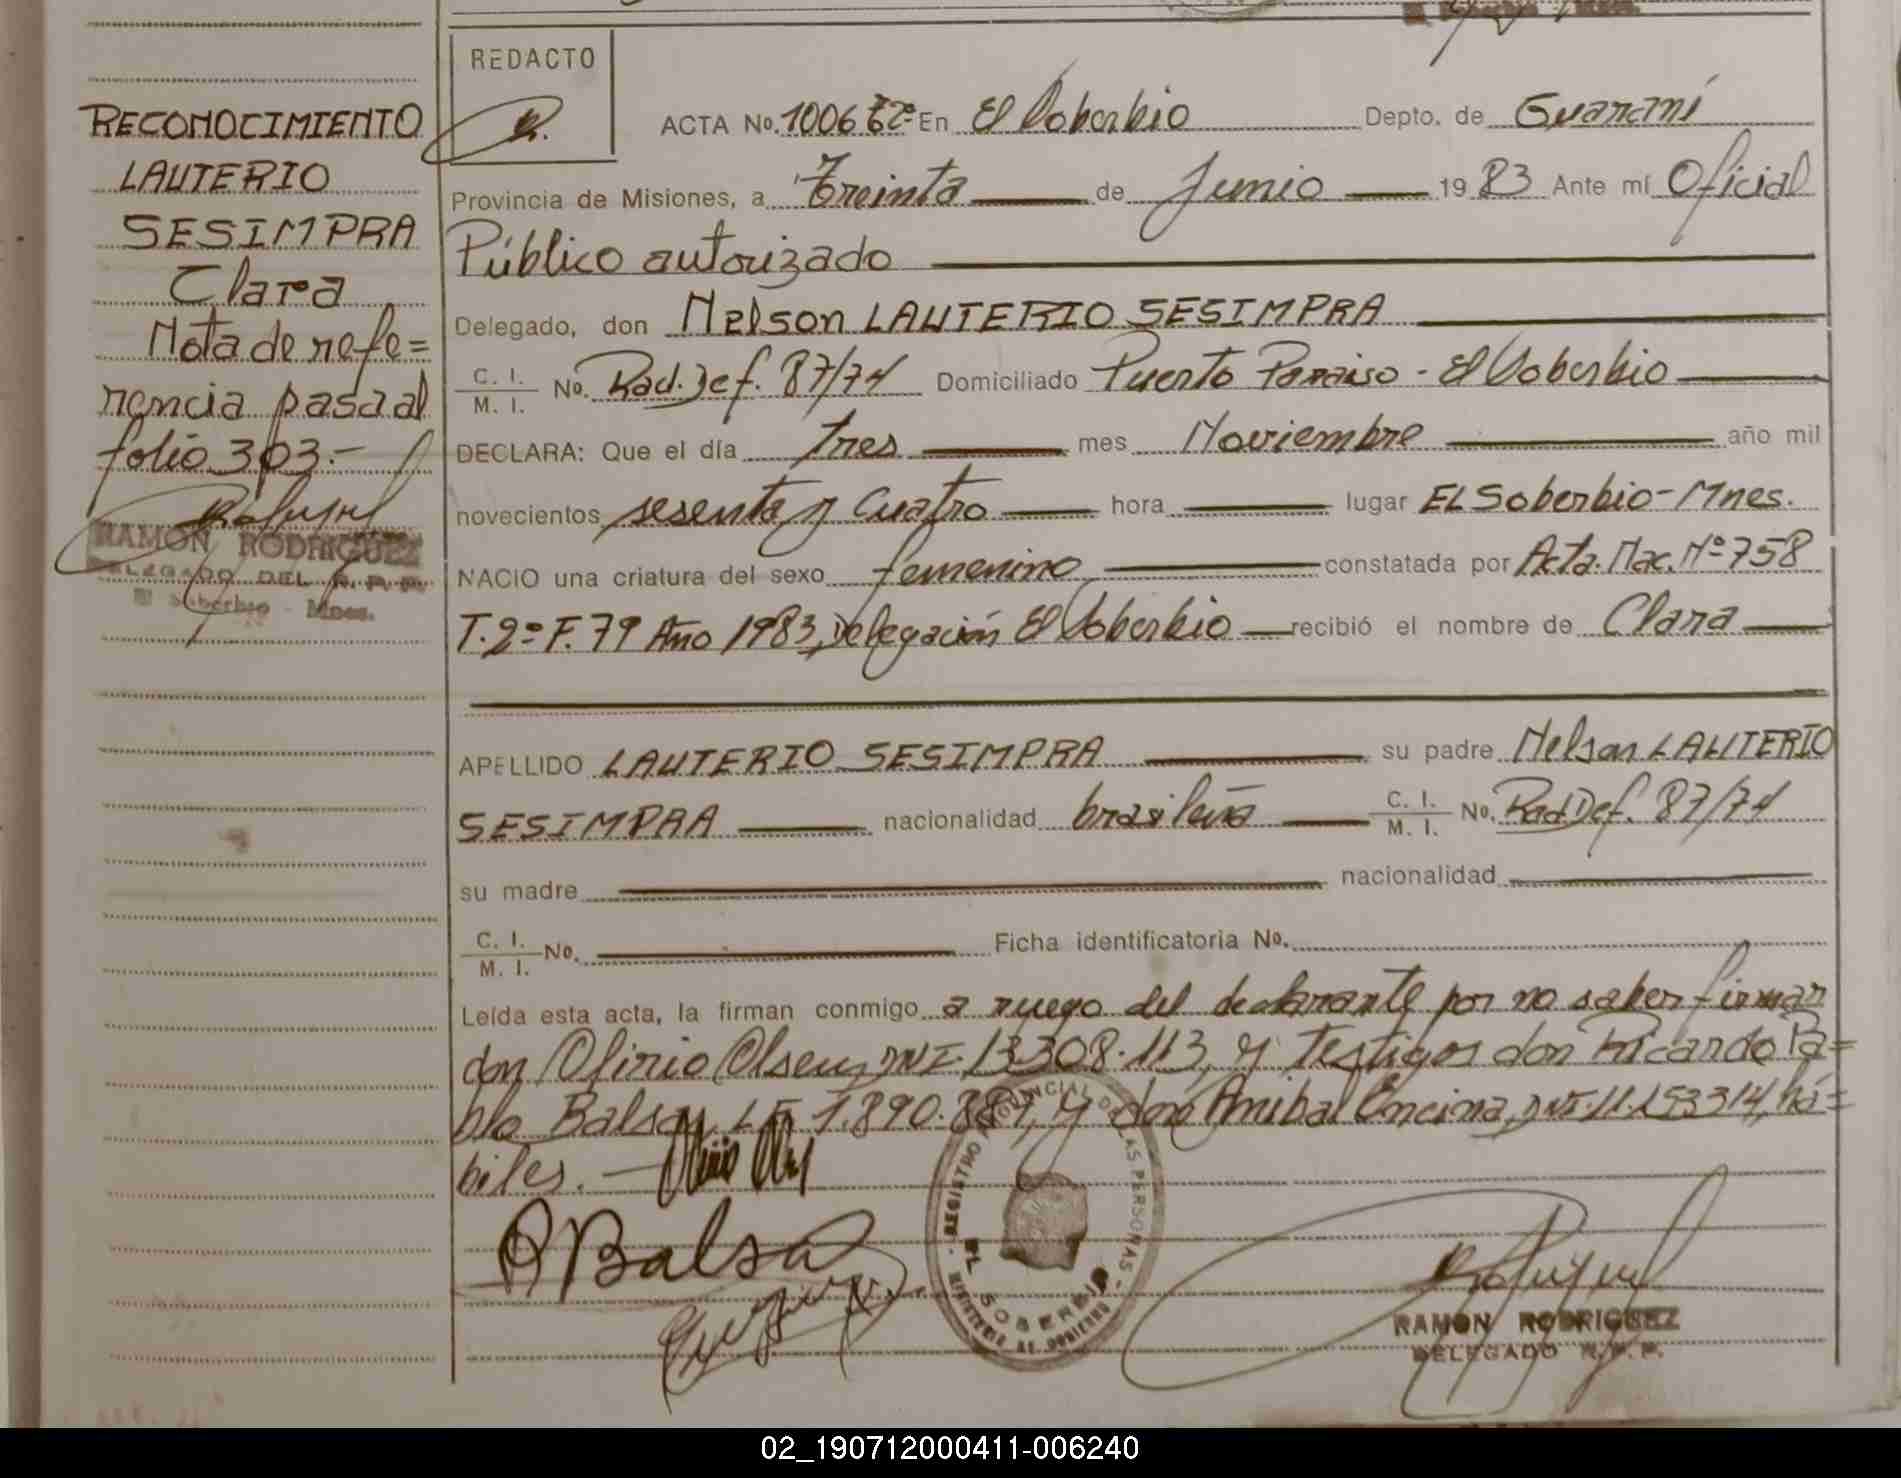 REDACTO
RECONOCIMIENTO
LAUTERIO
SESIMPRA
Clara
Nota de refe=
rencia pasa al
folio 303.-
RAMON RODRIGUEZ
DELEGADO DEL R. P. P.
El Soberbio - Mnes.
ACTA No. En El Soberbio Depto. de Guaraní
Provincia de Misiones, a Treinta de Junio 1983 Ante mí Oficial
Público autorizado
Delegado, don Nelson LAUTERIO SESIMPRA
C. I. / M. I. No. Rad. Def. 87/74 Domiciliado Puerto Paraiso - El Soberbio
DECLARA: Que el día tres mes Noviembre año mil
novecientos sesenta y cuatro hora lugar EL Soberbio - Mnes.
NACIO una criatura del sexo femenino constatada por Acta. Nac. Nº 758
T. 2º F. 79 Año 1983, Delegación El Soberbio recibió el nombre de Clara
APELLIDO LAUTERIO SESIMPRA su padre Nelson LAUTERIO
SESIMPRA nacionalidad brasileña C. I. / M. I. No. Rad. Def. 87/74
su madre nacionalidad
C. I. / M. I. No. Ficha identificatoria No.
Leída esta acta, la firman conmigo a ruego del declarante por no saber firmar
don Olirio Olsen, DNI. 13.308.113, y testigos don Ricardo Pa=
blo Balsa, L E 7.890.889, y don Anibal Encina, DNI. 11.153314, há=
biles.
R Balsa
REGISTRO PROVINCIAL DE LAS PERSONAS - MINISTERIO DE GOBIERNO
EL SOBERBIO
RAMON RODRIGUEZ
DELEGADO R. P. P.
02_190712000411-006240